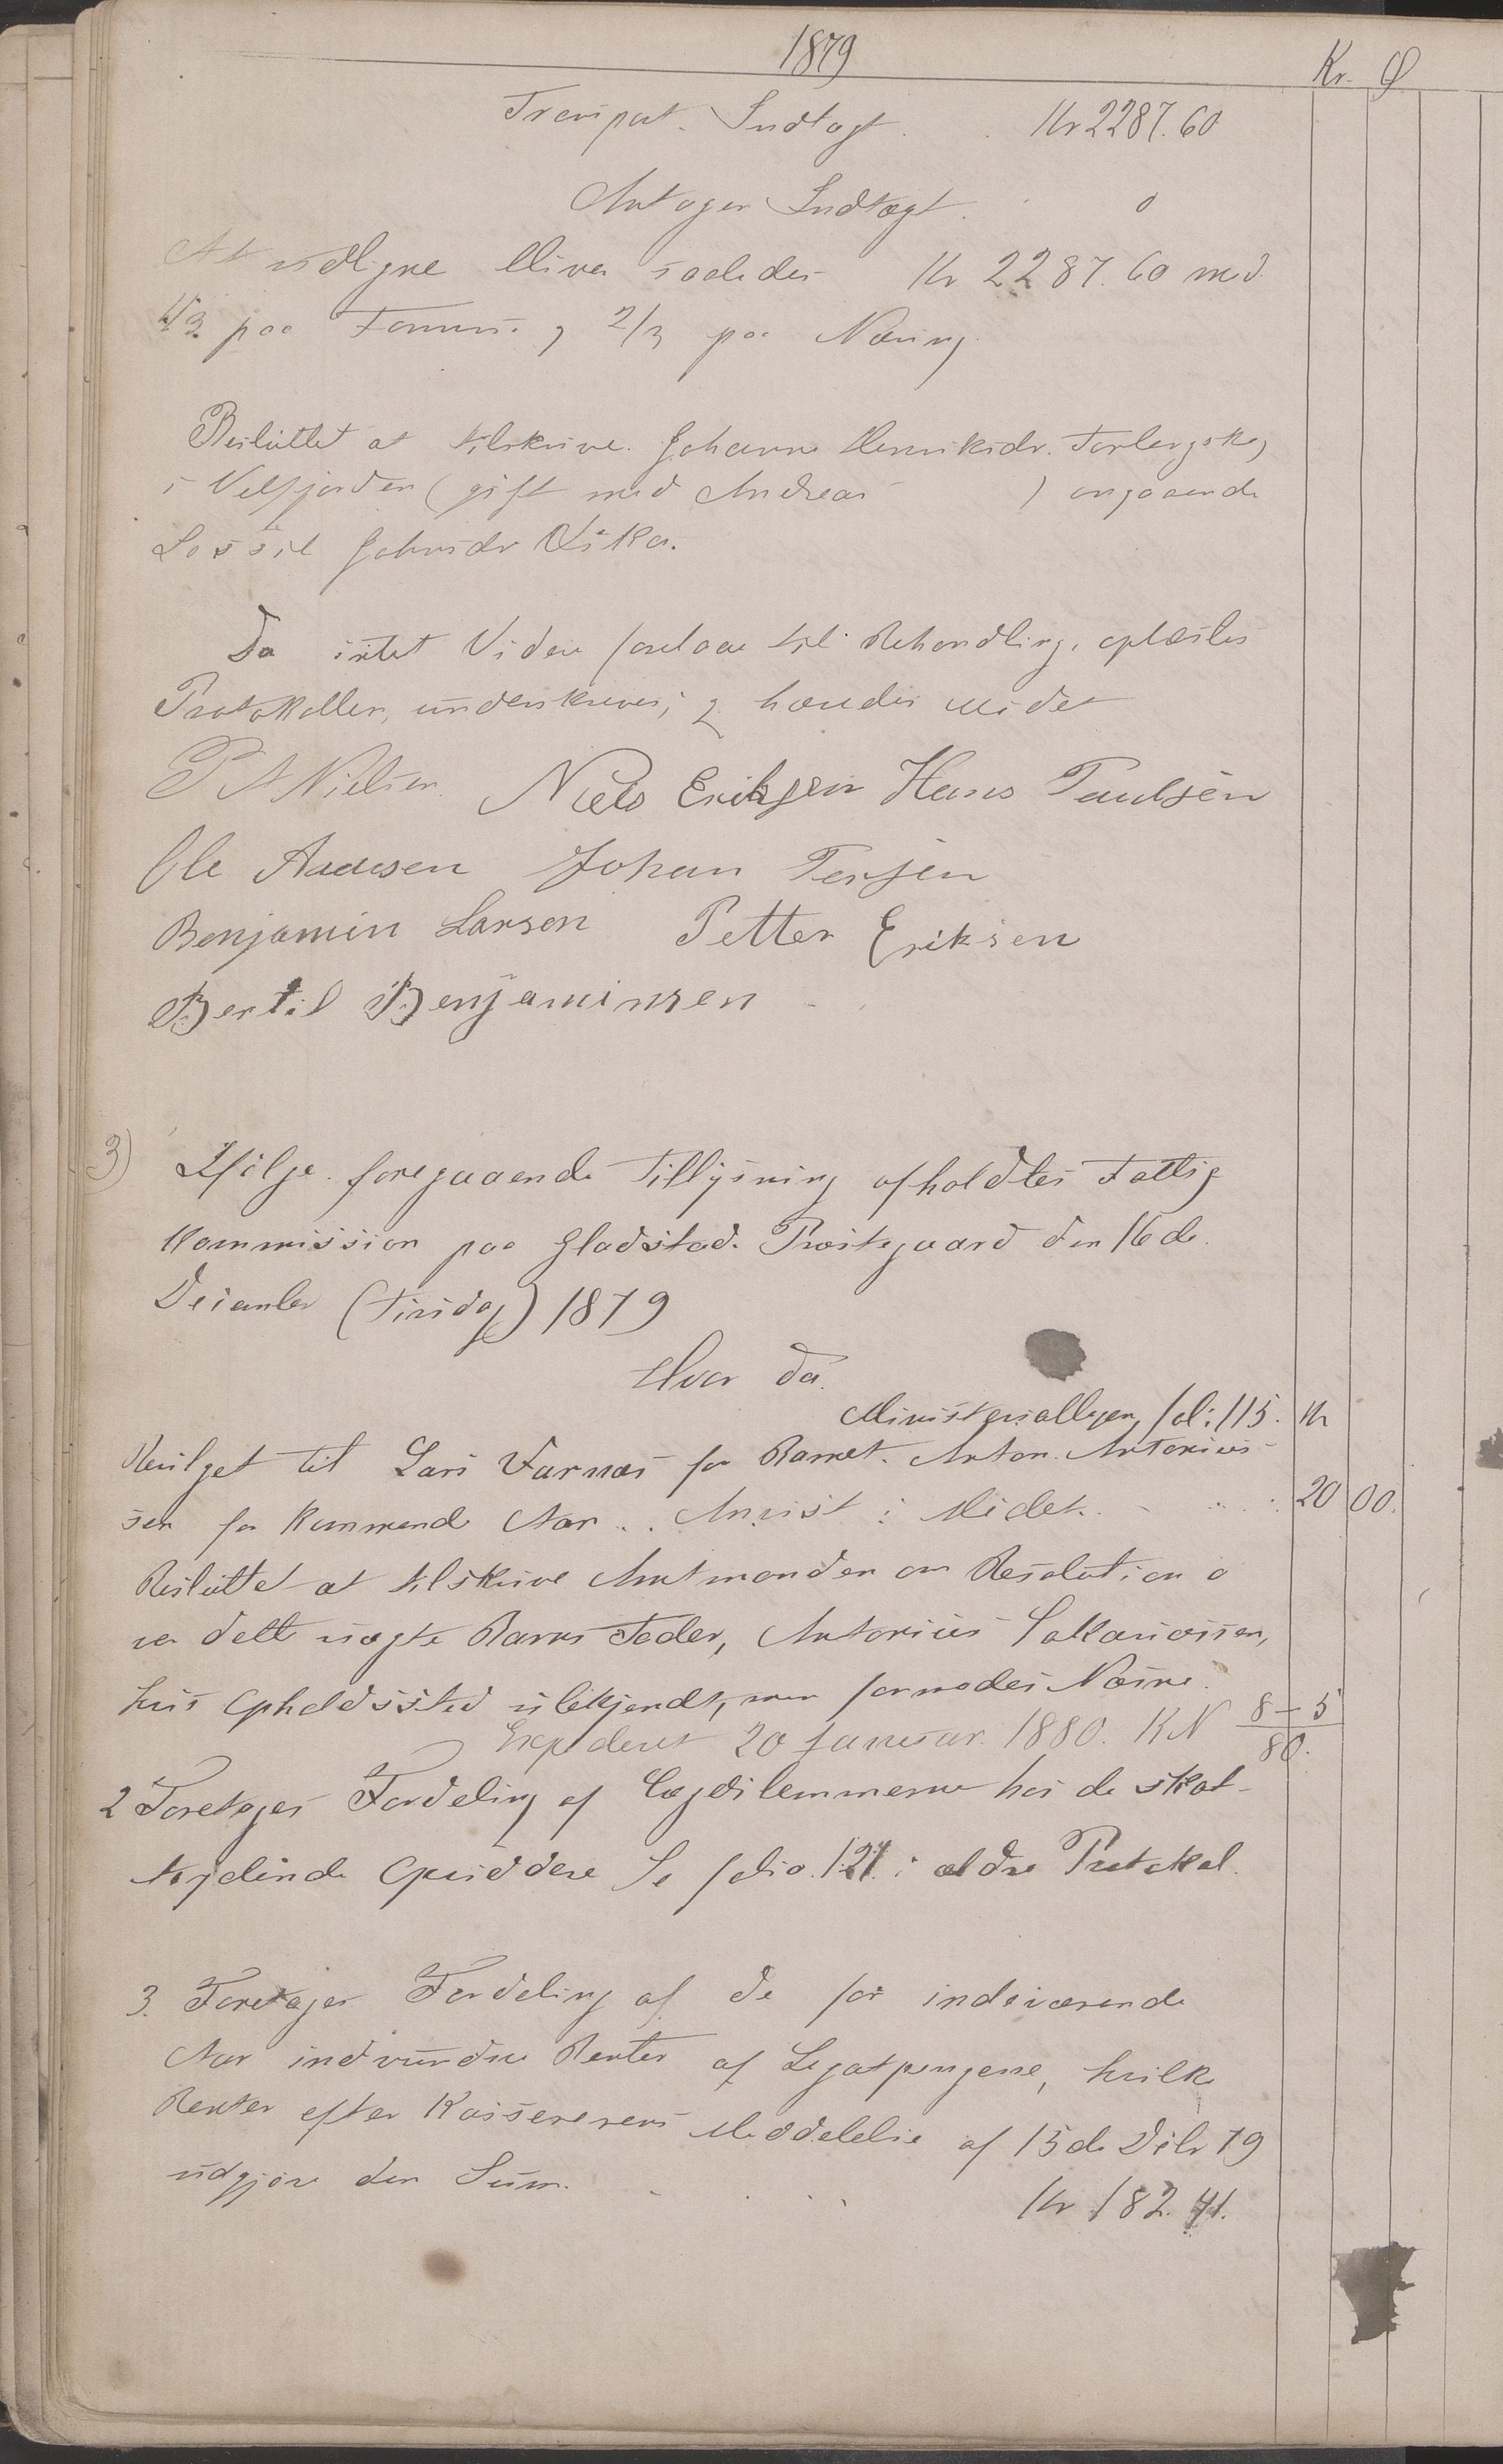 1879
Kr. Ø
Transport. Indtægt . . Kr 2287.60
Antagen Indtægt. . 0
At udligne bliver saaledes Kr 2287.60 med
1/3 paa Formue og 2/3 paa Næring
Besluttet at tilskrive Johanna Henriksdr.
i Velfjorden (gift med Andreas ) angaaende
Johnsdr Vika.
Da intet Videre forelaae til Behandling, oplæstes
Protokollen, underskreves, og hævedes Mødet
P A Nielsen. Niels Eriksen Hans Paulsen
Ole Johan
Benjamin Larsen Petter Eriksen
Bertil Benjaminsen
3) Ifølge foregaaende Tillysning afholdtes Fattig
Kommission paa Gladstad Præstegaard den 16de
December (Tirsdag) 1879
Hvor da
Ministerialbogen, fol: 115. Kr
Bevilget til Lars Varnæs for Barnet Anton Antonius-
sen for kommende Aar . . Anvist i Mødet. . . . 20 00.
Besluttet at tilskrive Amtmanden om Resolution o
ver dette uægte Barns Fader, Antonius Sakariassen,
hvis Opholdssted ubekjendt, men formodes Næsne.
Expederet 20 Januar. 1880. RN 8-5/80.
2 Foretages Fordeling af Lægdslemmerne hos de skat-
tegdende Opsiddere Se folio 121 i ældre Protokol.
3. Foretages Fordeling af de for indeværende
Aar indvundne Renter af Legatpengene, hvilke
Renter efter Kassererens Meddelelse af 15de Dcbr 79
udgjøre den Sum . . . . Kr 182.41.